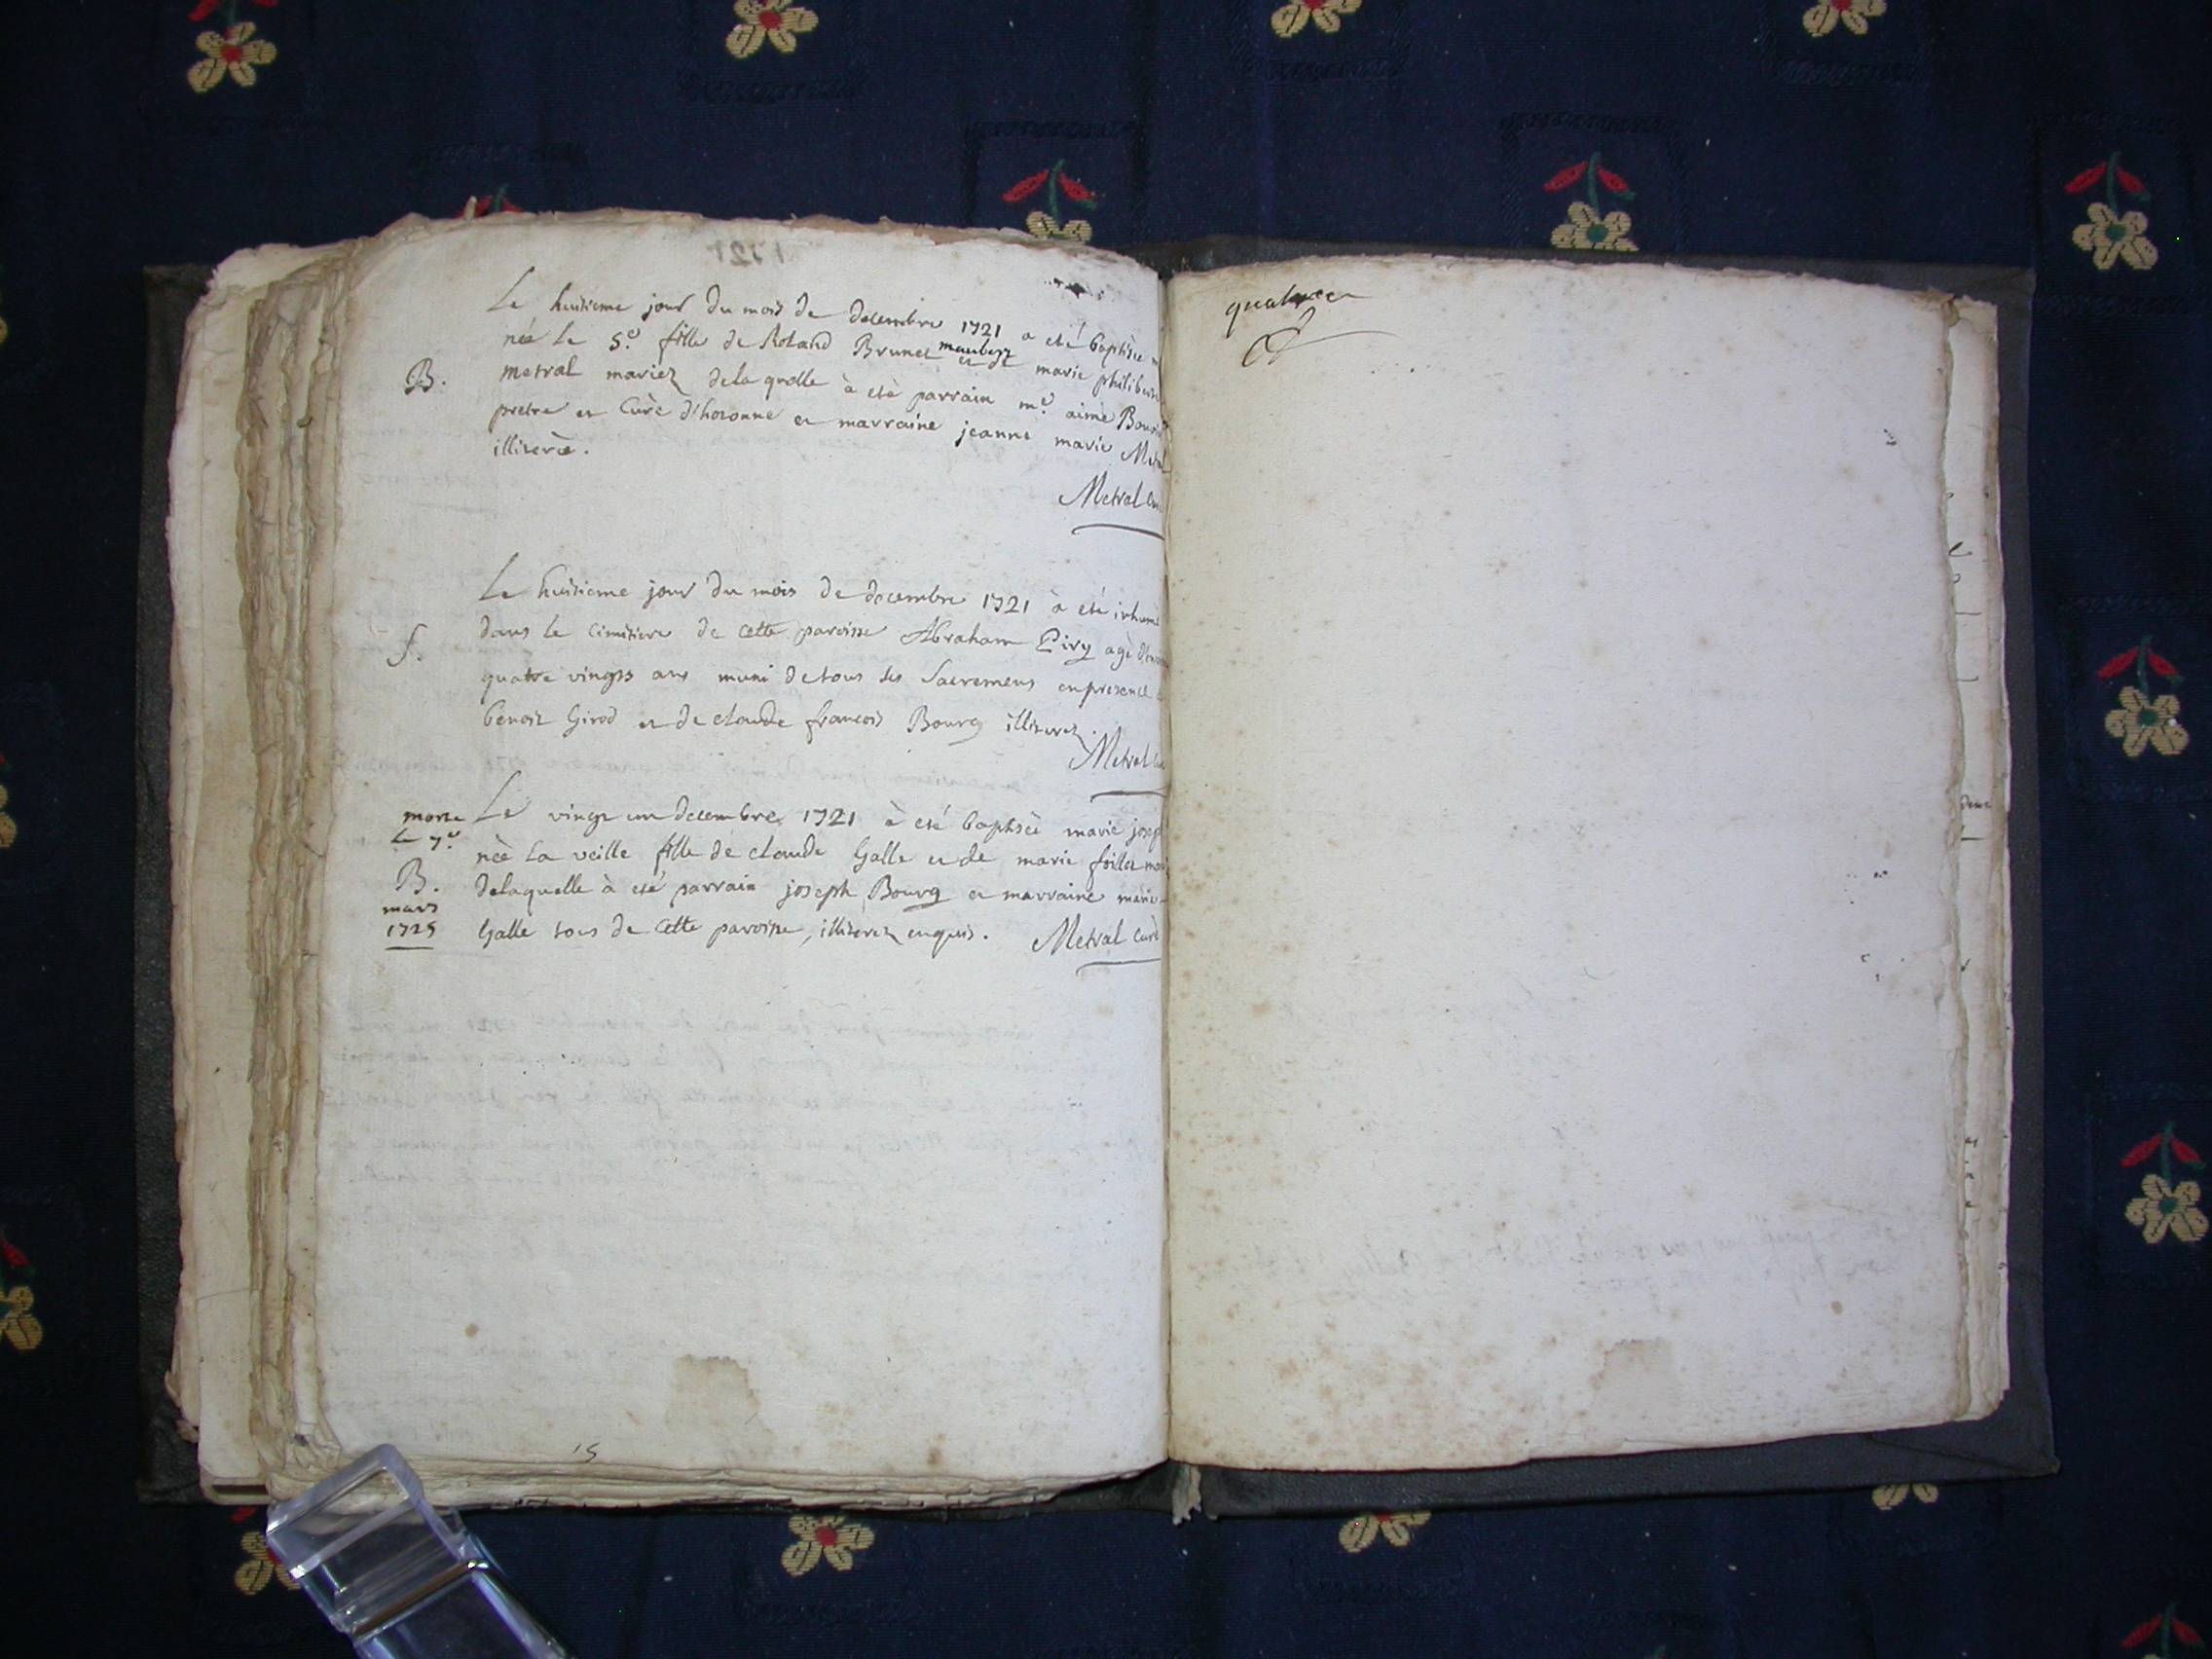 Le huitieme jour du mois de decembre 1721 a eté baptisée
née le 5.e fille de Roland Brunet maubez et de marie philiberte
B. metral mariez delaquelle à eté parrain m.e aimé
pretre et Curé d'hotonne et marraine jeanne marie Metral
illiterée.
Metral Curé
Le huitieme jour du mois de decembre 1721 à eté inhumé
dans le cimitiere de cette paroisse Abraham Pivy agé
f.
quatre vingts ans muni de tous ses Sacremens en presence
benoit Girod et de claude francois Bourg illiterez.
Metral
morte Le vingt un decembre 1721 à eté baptisée marie
le 7.e née la veille fille de claude Galle et de marie foillet
B. delaquelle à eté parrain joseph Bourg et marraine marie
mars
1725 Galle tous de cette paroisse, illiterez enquis. Metral Curé
15